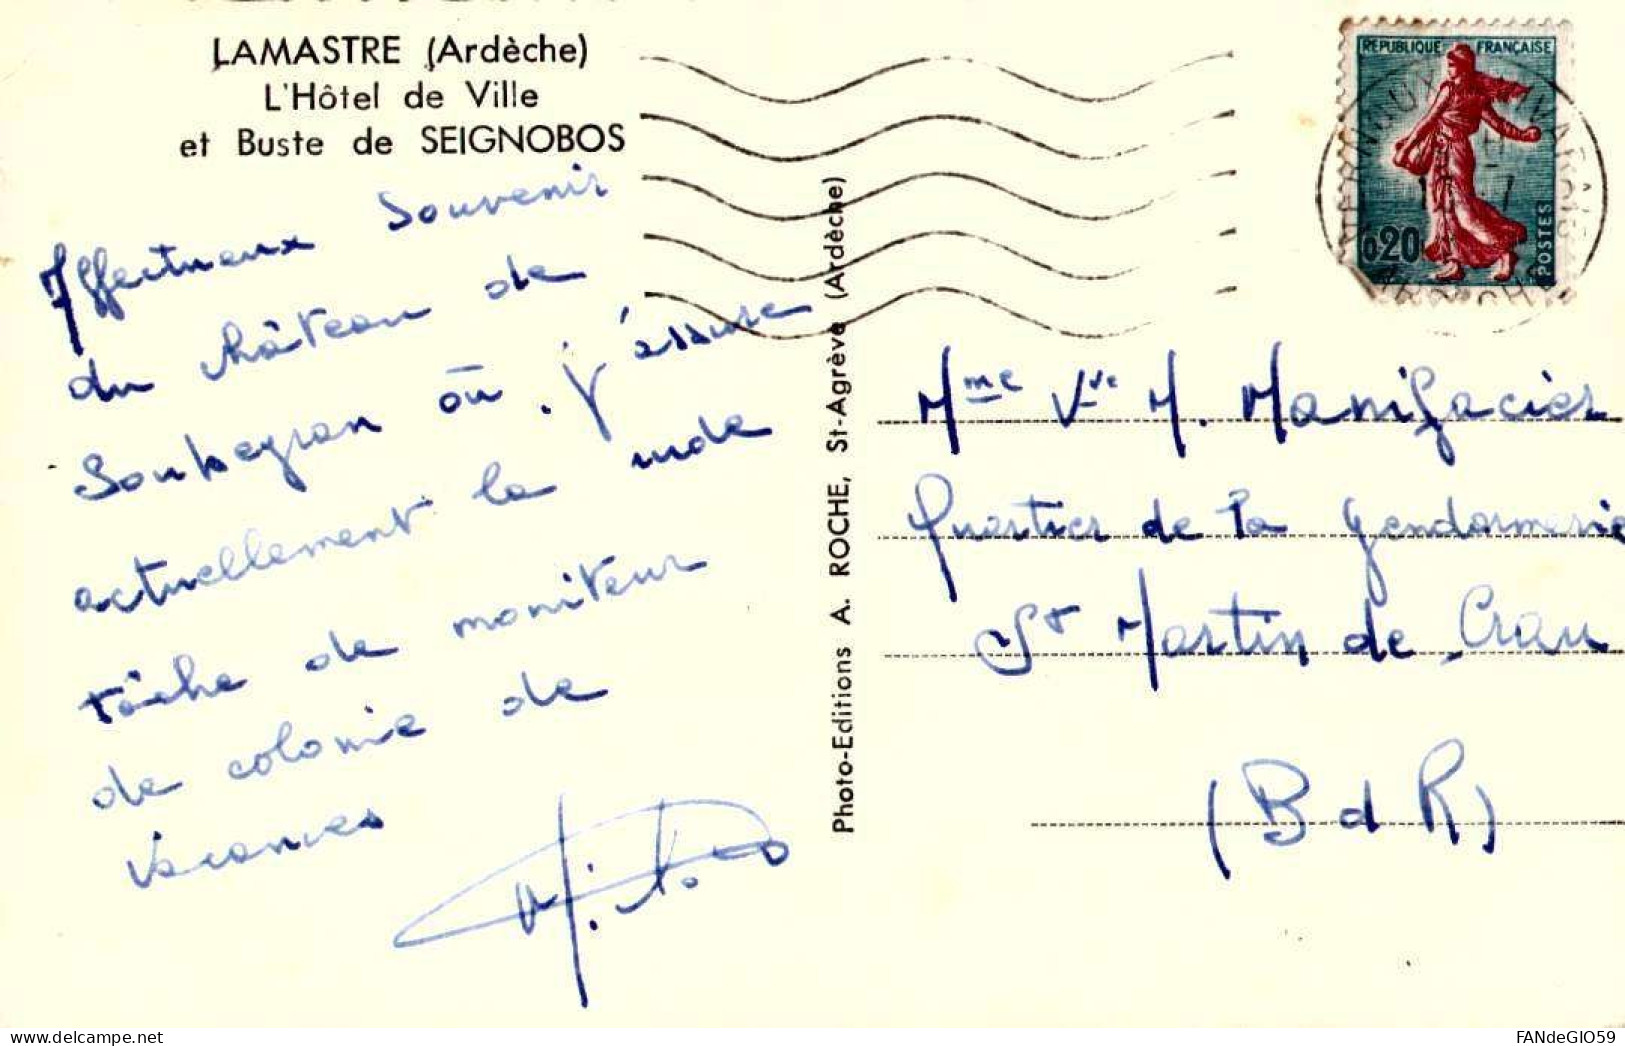 LAMASTRE (Ardèche)
L'Hôtel de Ville
et Buste de SEIGNOBOS
Affectueux Souvenir
du château de
Soubeyran où j'assure
actuellement la rude
tâche de moniteur
de colonie de
vacances
Photo-Editions A. ROCHE, St-Agrève (Ardèche)
REPUBLIQUE FRANÇAISE
0,20
POSTES
Mme Vve M. Manifacier
Quartier de la gendarmerie
St Martin de Crau
(B d R)
FANdeGIO59